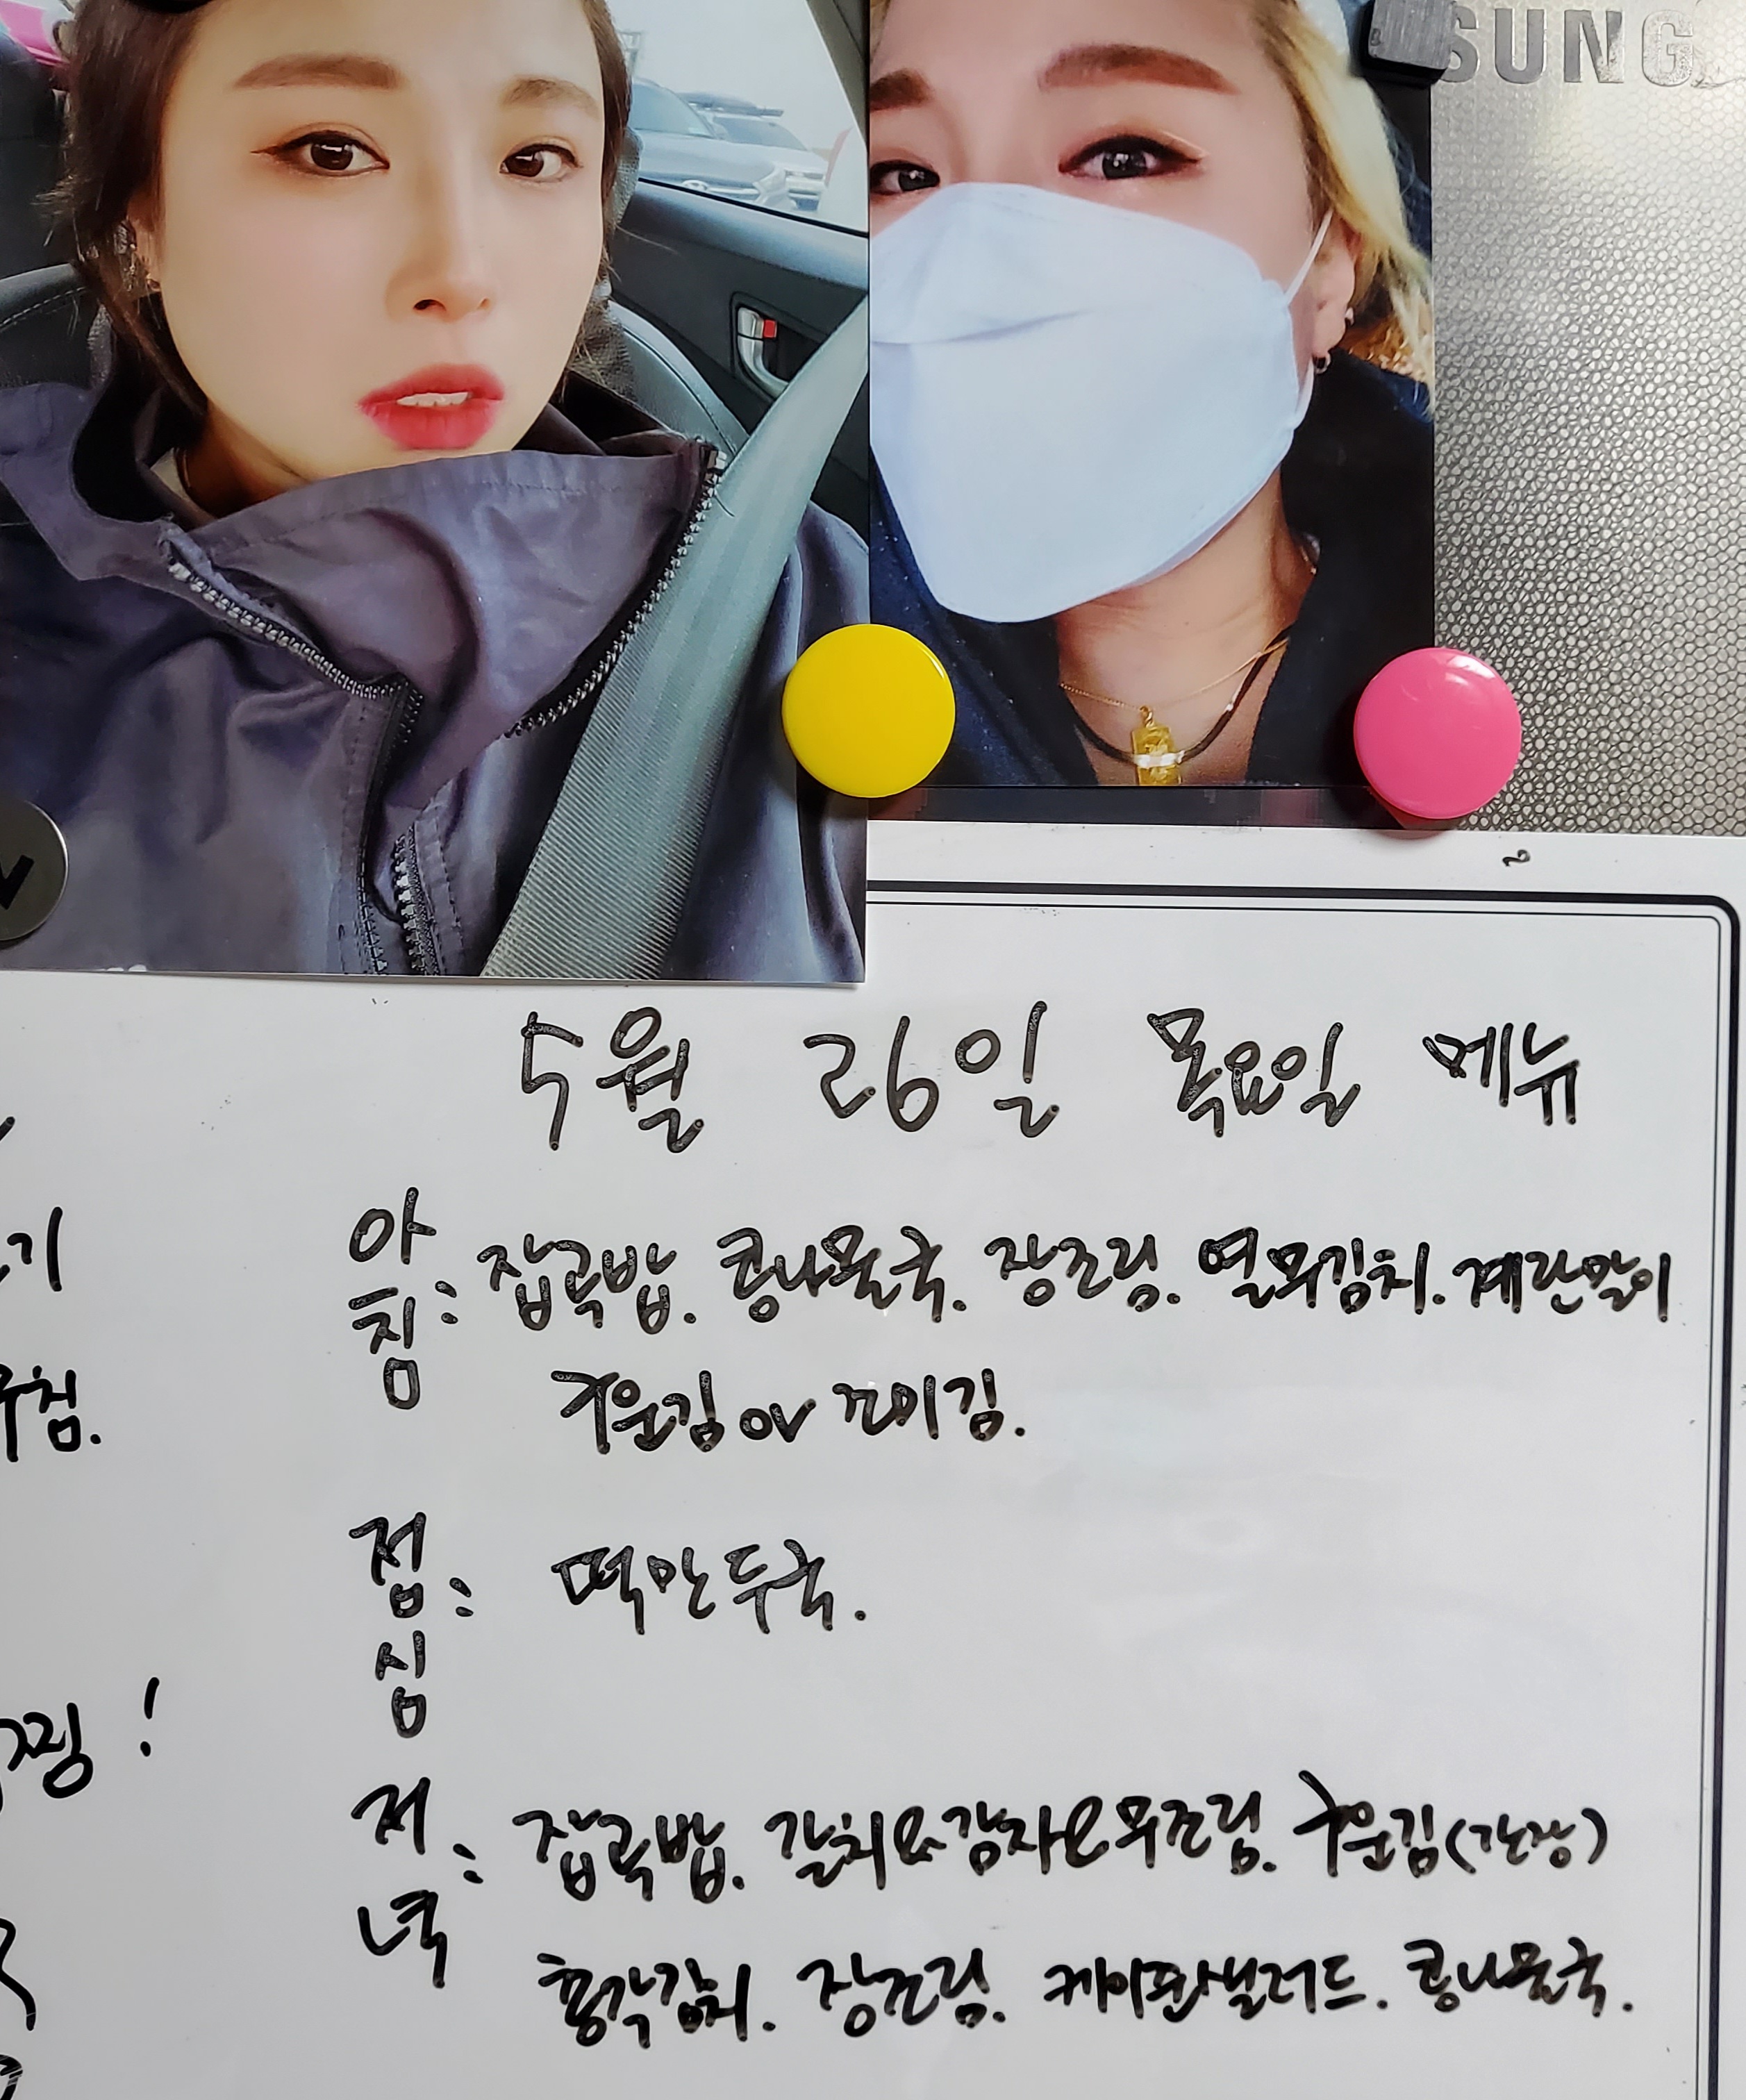 SUNG
5월 26일 목요일 메뉴
아침: 잡곡밥. 콩나물국. 장조림. 열무김치. 계란말이
구운김 or 꼬이김.
점심: 떡만두국.
저녁: 잡곡밥. 갈치&감자&무조림. 구운김(간장)
총각김치. 장조림. 케이준샐러드. 콩나물국.
기
무침.
찜!